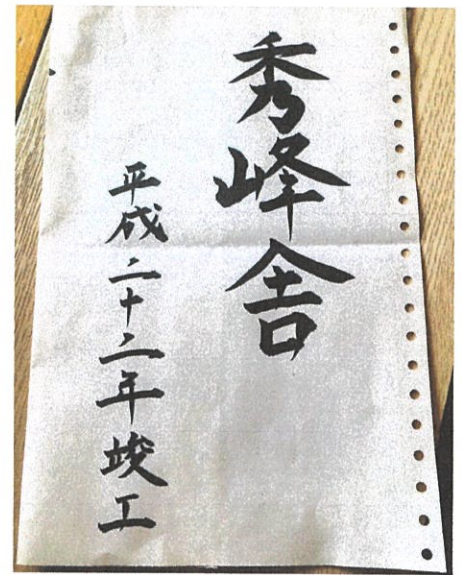 秀峰舎
平成二十二年竣工